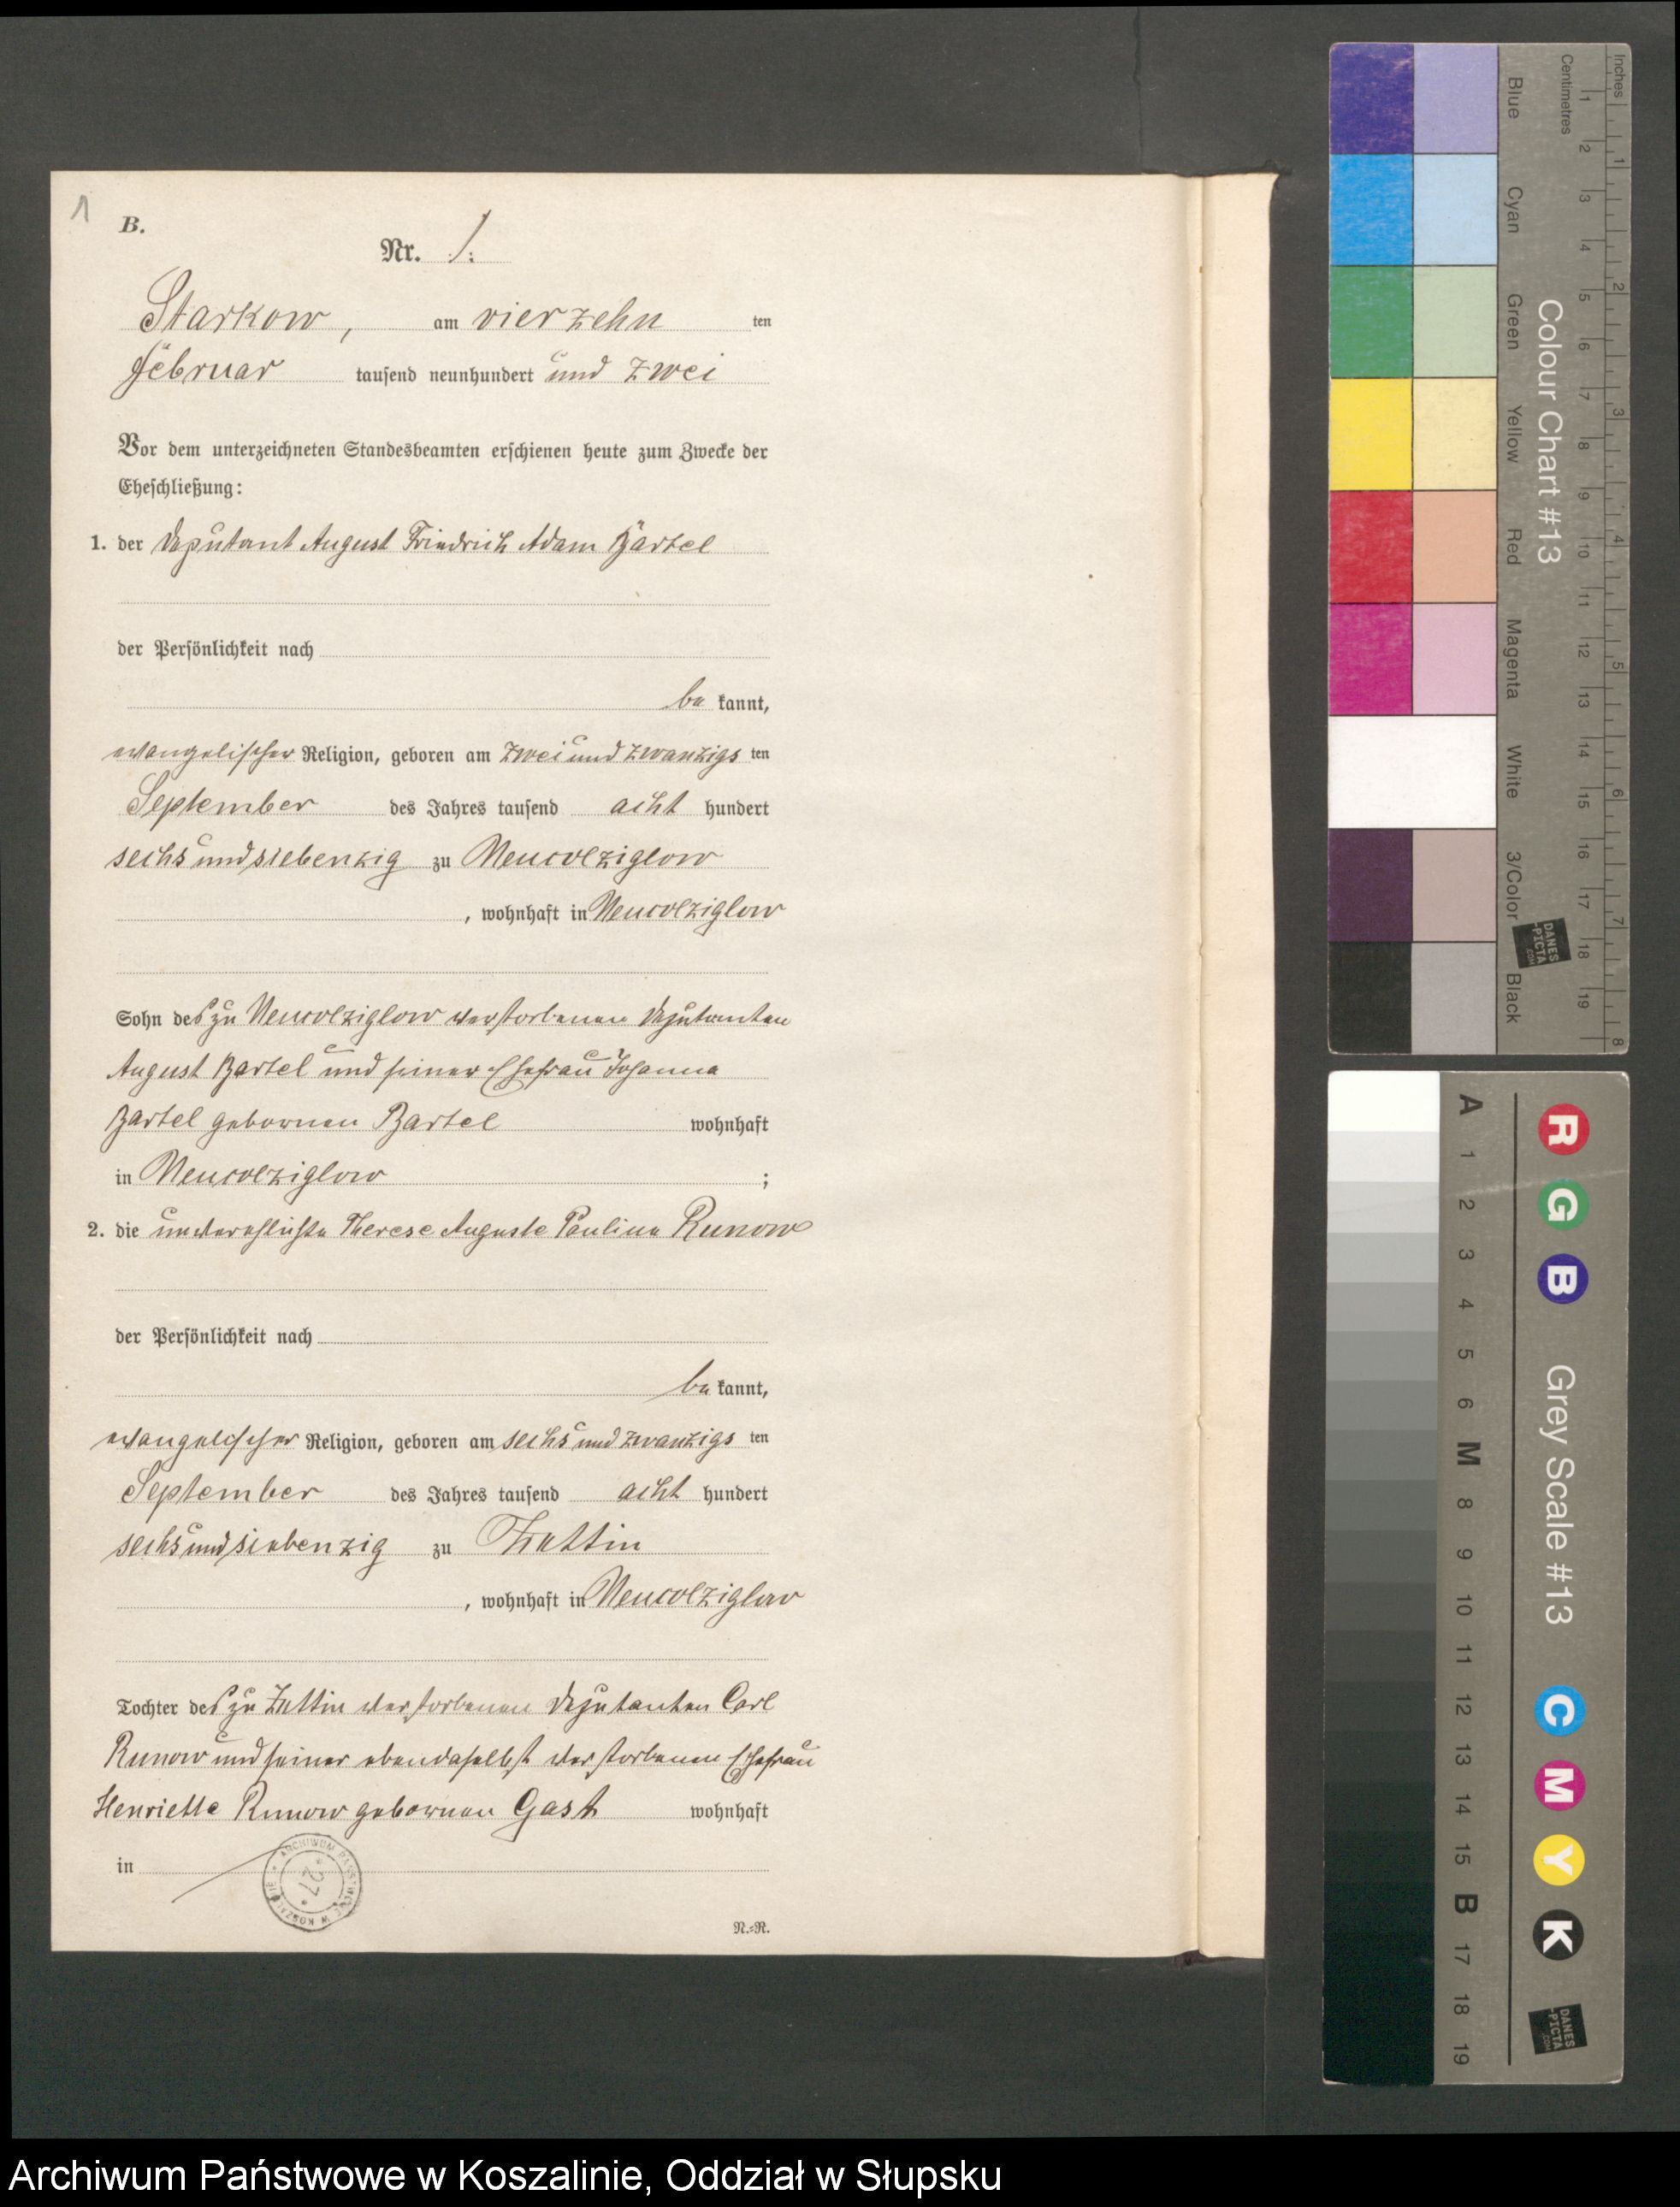 1
B.
Nr. 1.
Starkow, am vierzehn ten
Februar tausend neunhundert und zwei
Vor dem unterzeichneten Standesbeamten erschienen heute zum Zwecke der
Eheschließung:
1. der Deputant August Friedrich Adam Bartel
der Persönlichkeit nach
be kannt,
evangelischer Religion, geboren am zwei und zwanzigs ten
September des Jahres tausend acht hundert
sechs und siebenzig zu Neucolziglow
, wohnhaft in Neucolziglow
Sohn des zu Neucolziglow verstorbenen Deputanten
August Bartel und seiner Ehefrau Johanna
Bartel gebornen Bartel wohnhaft
in Neucolziglow ;
2. die unverehlichte Therese Auguste Pauline Runow
der Persönlichkeit nach
be kannt,
evangelischer Religion, geboren am sechs und zwanzigs ten
September des Jahres tausend acht hundert
sechs und siebenzig zu Zettin
, wohnhaft in Neucolziglow
Tochter des zu Zettin verstorbenen Deputanten Carl
Runow und seiner ebendaselbst verstorbenen Ehefrau
Henriette Runow gebornen Gast wohnhaft
in
ARCHIWUM PAŃSTWOWE W KOSZALINIE
* 27 *
N.-R.
Inches 1 2 3 4 5 6 7 8
Centimetres 1 2 3 4 5 6 7 8 9 10 11 12 13 14 15 16 17 18 19
Colour Chart #13
Blue Cyan Green Yellow Red Magenta White 3/Color Black
DANES
-PICTA
.COM
A 1 2 3 4 5 6 M 8 9 10 11 12 13 14 15 B 17 18 19
R G B Grey Scale #13 C M Y K
DANES
-PICTA
.COM
Archiwum Państwowe w Koszalinie, Oddział w Słupsku